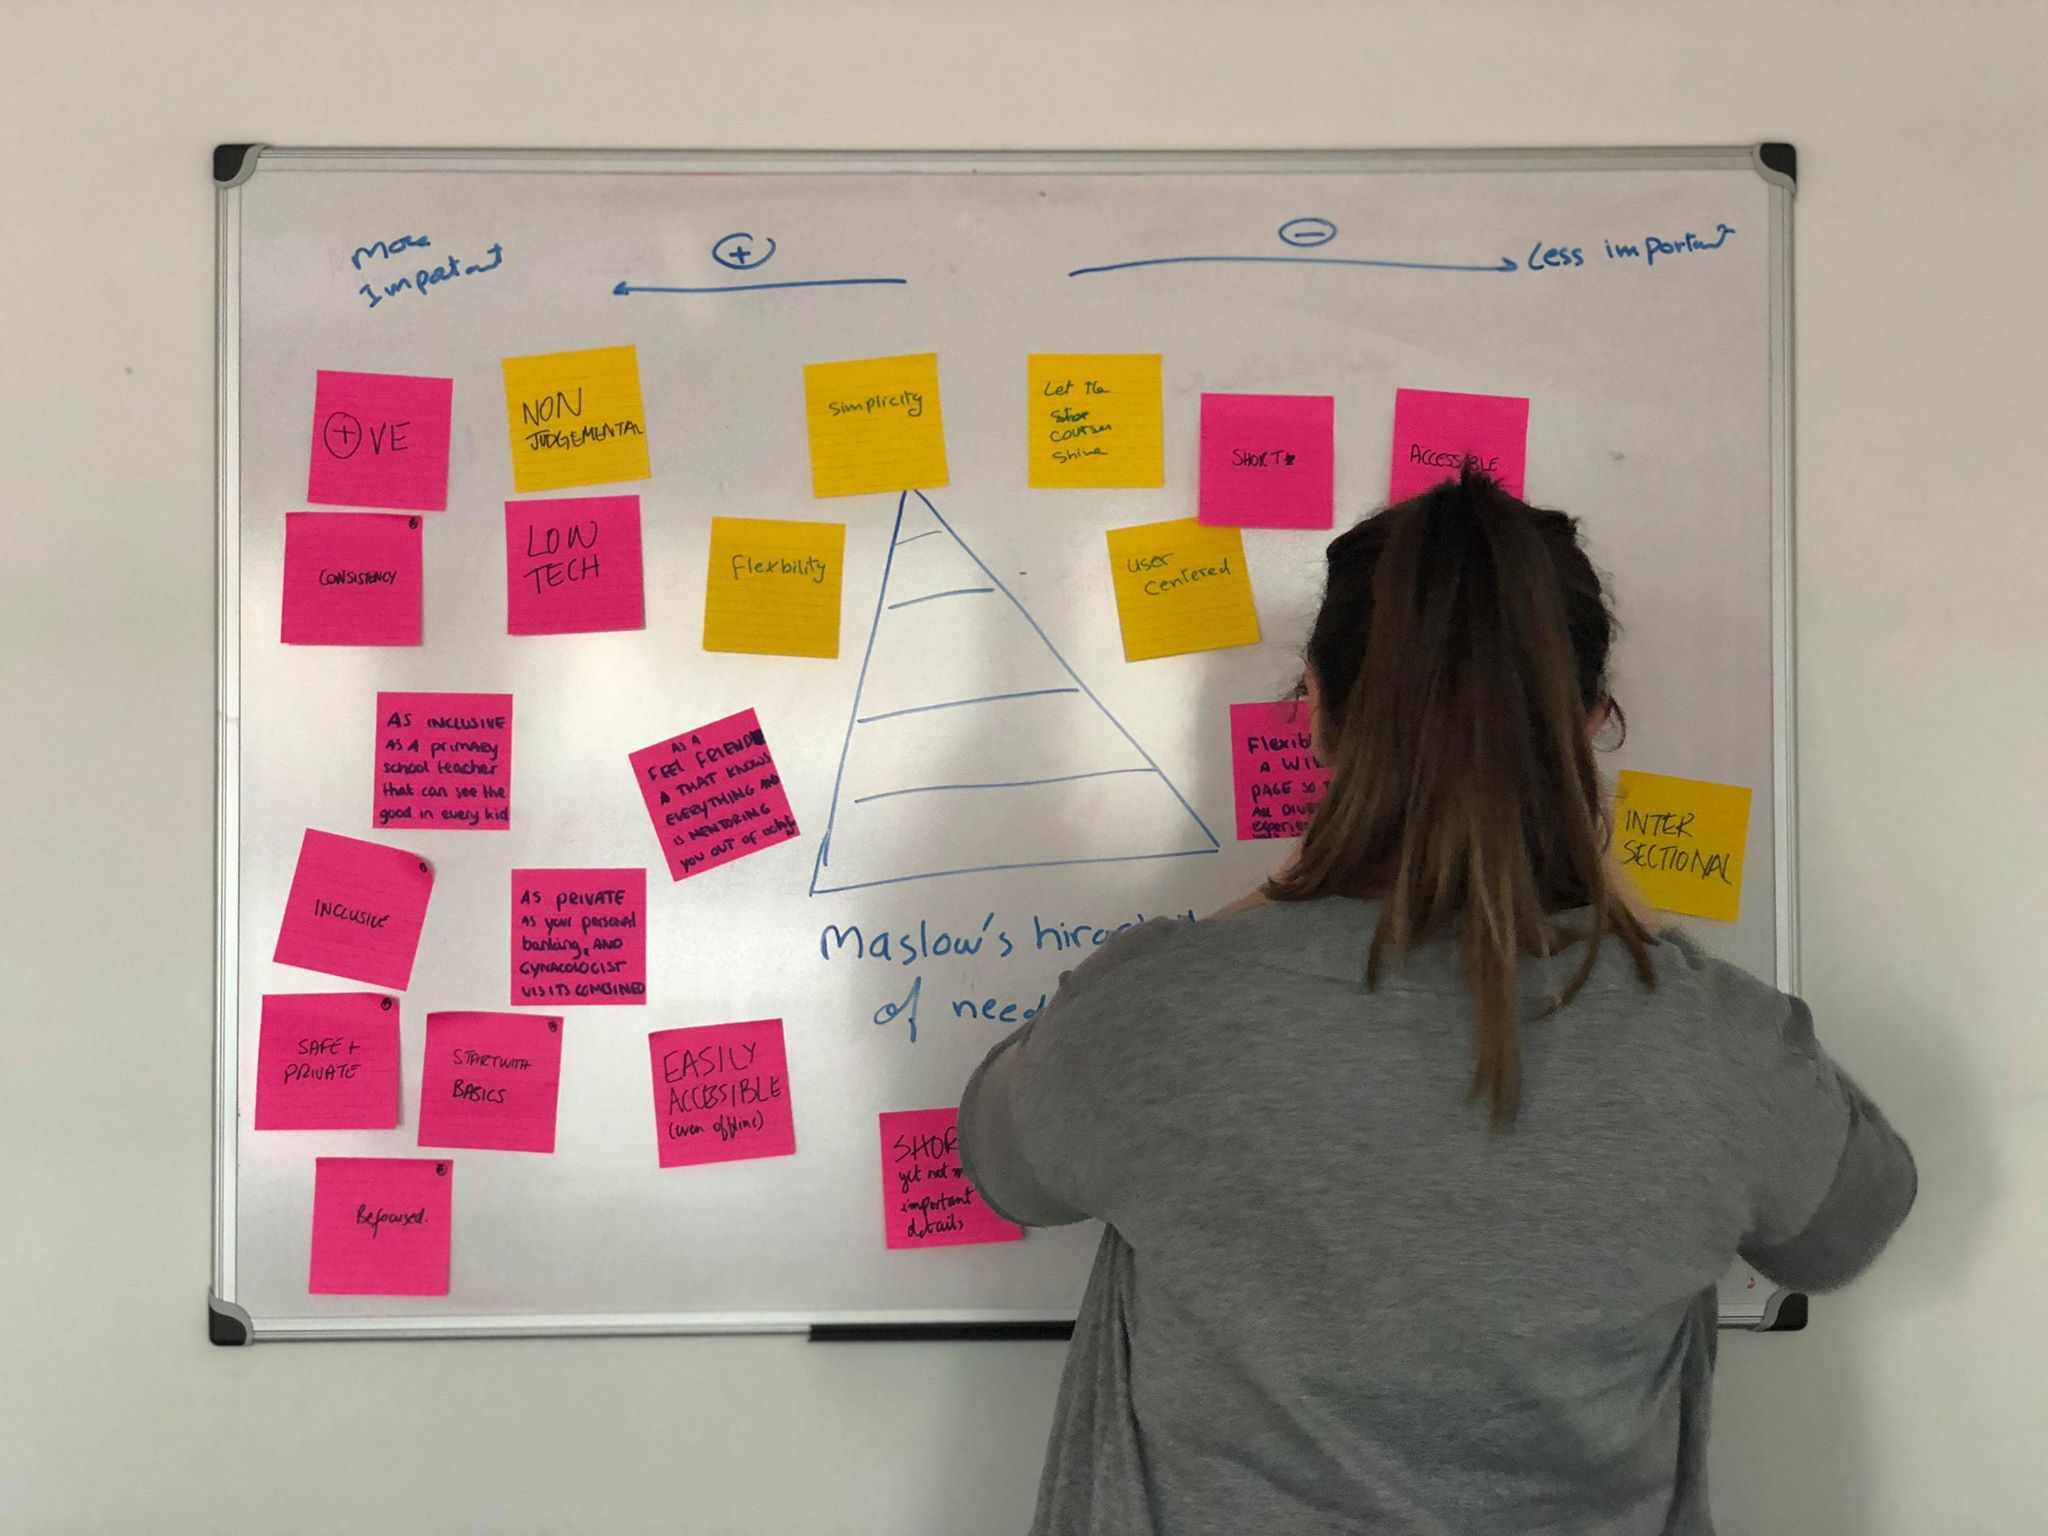 More
Important
+
-
Less important
+ VE
NON
JUDGEMENTAL
Simplicity
Let the
courses
shine
SHORT
ACCESSIBLE
CONSISTENCY
LOW
TECH
Flexbility
user
centered
AS INCLUSIVE
AS A PRIMARY
school teacher
that can see the
good in every kid
AS A
FEEL FRIEND
A THAT KNOWS
EVERYTHING AND
IS MENTORING
YOU OUT OF
Flexib
A WI
PAGE SO
ALL DIVE
experie
INTER
SECTIONAL
INCLUSIVE
AS PRIVATE
AS your personal
banking, AND
GYNACOLOGIST
VISITS COMBINED
Maslow's hira
of need
SAFE +
PRIVATE
START WITH
BASICS
EASILY
ACCESSIBLE
(even offline)
SHOR
yet not m
important
details
Be focused.